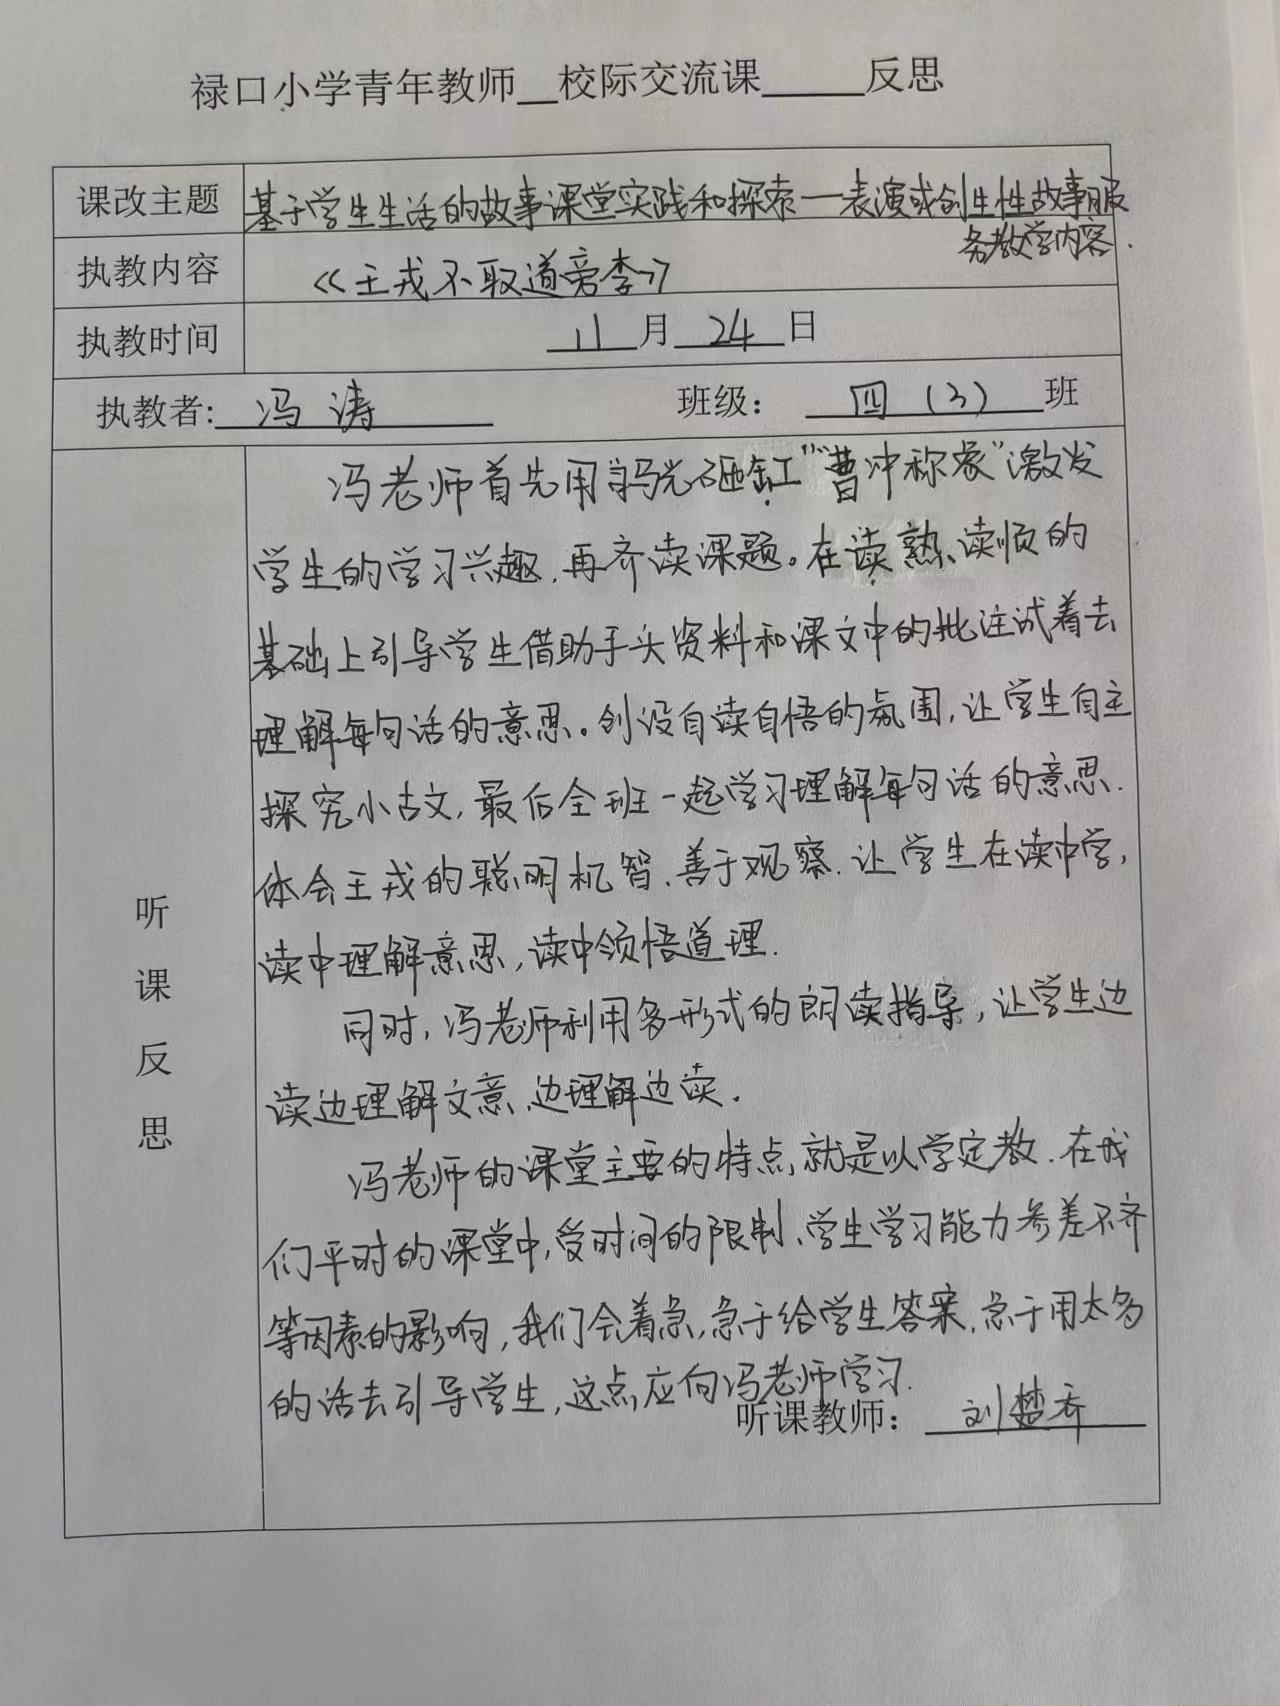 禄口小学青年教师__校际交流课_____反思
课改主题 基于学生生活的故事课堂实践和探索—表演或创生性故事服
务教学内容.
执教内容 《王戎不取道旁李》
执教时间 11月24日
执教者: 冯涛 班级: 四(3)班
冯老师首先用"司马光砸缸""曹冲称象"激发
学生的学习兴趣,再齐读课题。在读熟、读顺的
基础上引导学生借助手头资料和课文中的批注试着去
理解每句话的意思。创设自读自悟的氛围,让学生自主
探究小古文,最后全班一起学习理解每句话的意思.
体会王戎的聪明机智、善于观察.让学生在读中学,
读中理解意思,读中领悟道理.
同时,冯老师利用多形式的朗读指导,让学生边
读边理解文意、边理解边读.
冯老师的课堂主要的特点,就是以学定教.在我
们平时的课堂中,受时间的限制、学生学习能力参差不齐
等因素的影响,我们会着急,急于给学生答案,急于用太多
的话去引导学生,这点应向冯老师学习.
听课教师: 刘楚乔
听
课
反
思